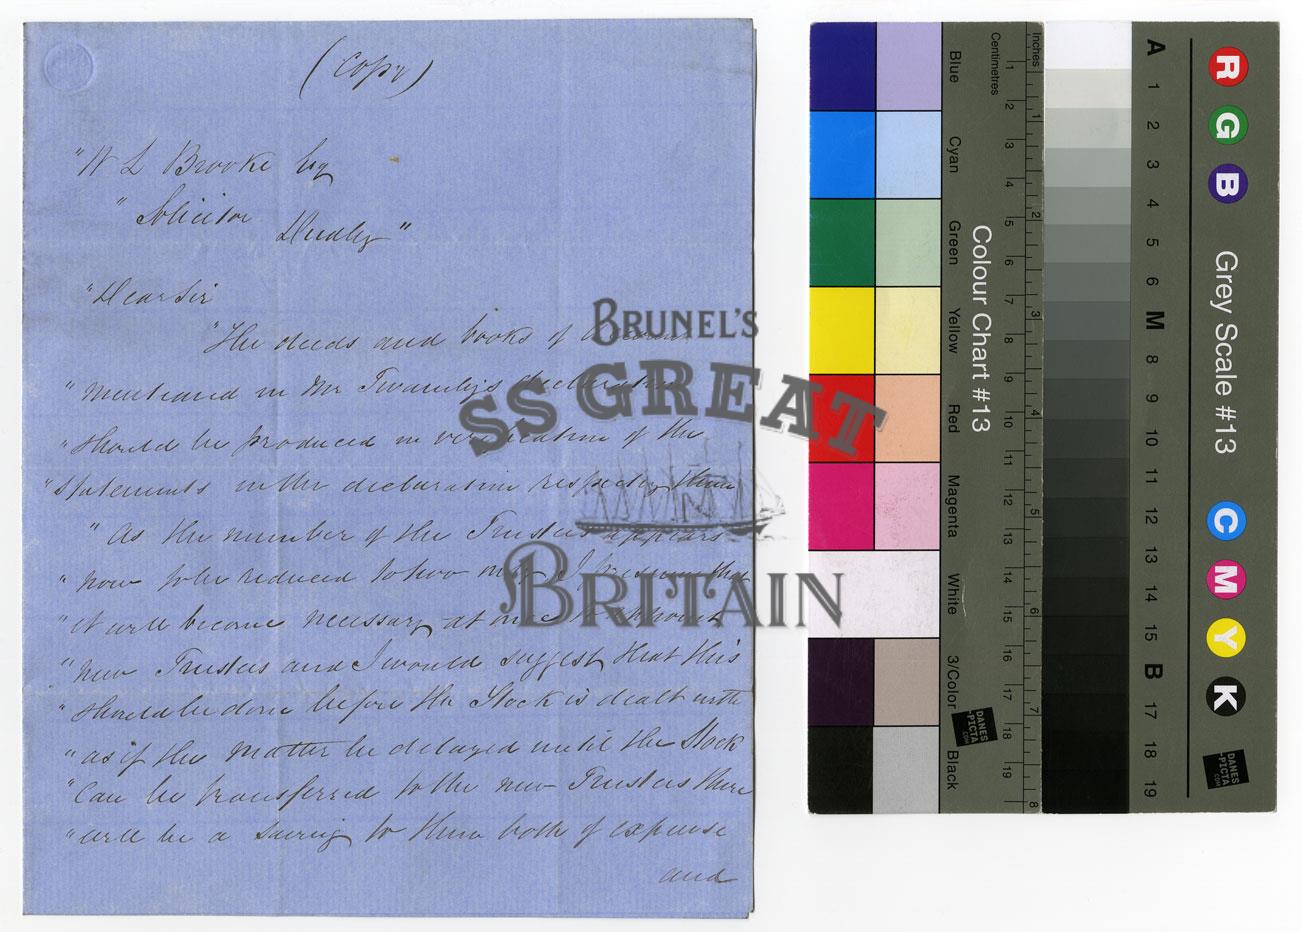 (Copy)
"W L Brooke Esq
" Solicitor
Dudley"
"Dear Sir
"The deeds and books of Account
"mentioned in Mr Twamley's declaration
"should be produced in verification of the
"statements in the declaration respecting them
" As the number of the Trustees appears
"now to be reduced to two only I presume that
"it will become necessary at once to appoint
"new Trustees and I would suggest that this
"should be done before the Stock is dealt with
"as if the matter be delayed until the Stock
"can be transferred to the new Trustees there
"will be a saving to them both of expense
and
BRUNEL'S
SS GREAT
BRITAIN
Blue
Cyan
Green
Yellow
Red
Magenta
White
3/Color
Black
Colour Chart #13
Centimetres
1 2 3 4 5 6 7 8 9 10 11 12 13 14 15 16 17 18 19
Inches
1 2 3 4 5 6 7 8
DANES
-PICTA
.COM
A 1 2 3 4 5 6 M 8 9 10 11 12 13 14 15 B 17 18 19
R G B
Grey Scale #13
C M Y K
DANES
-PICTA
.COM